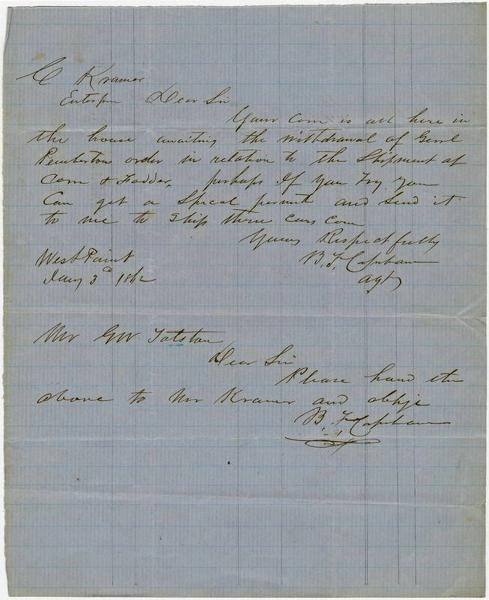 C Kramer
Dear Sir
Your Corn is all here in
the house awaiting the withdrawal of Genl
Pemberton order in relation to the Shipment of
Corn & Fodder, perhaps If You Try, you
Can get a Special permit and Send it
to me to Ship three cars Corn
Yours Respectfully
West Point B F
Jany 3d 1862 agt
Mr GW
Dear Sir
Please hand the
above to Mr Kramer and oblige
B F